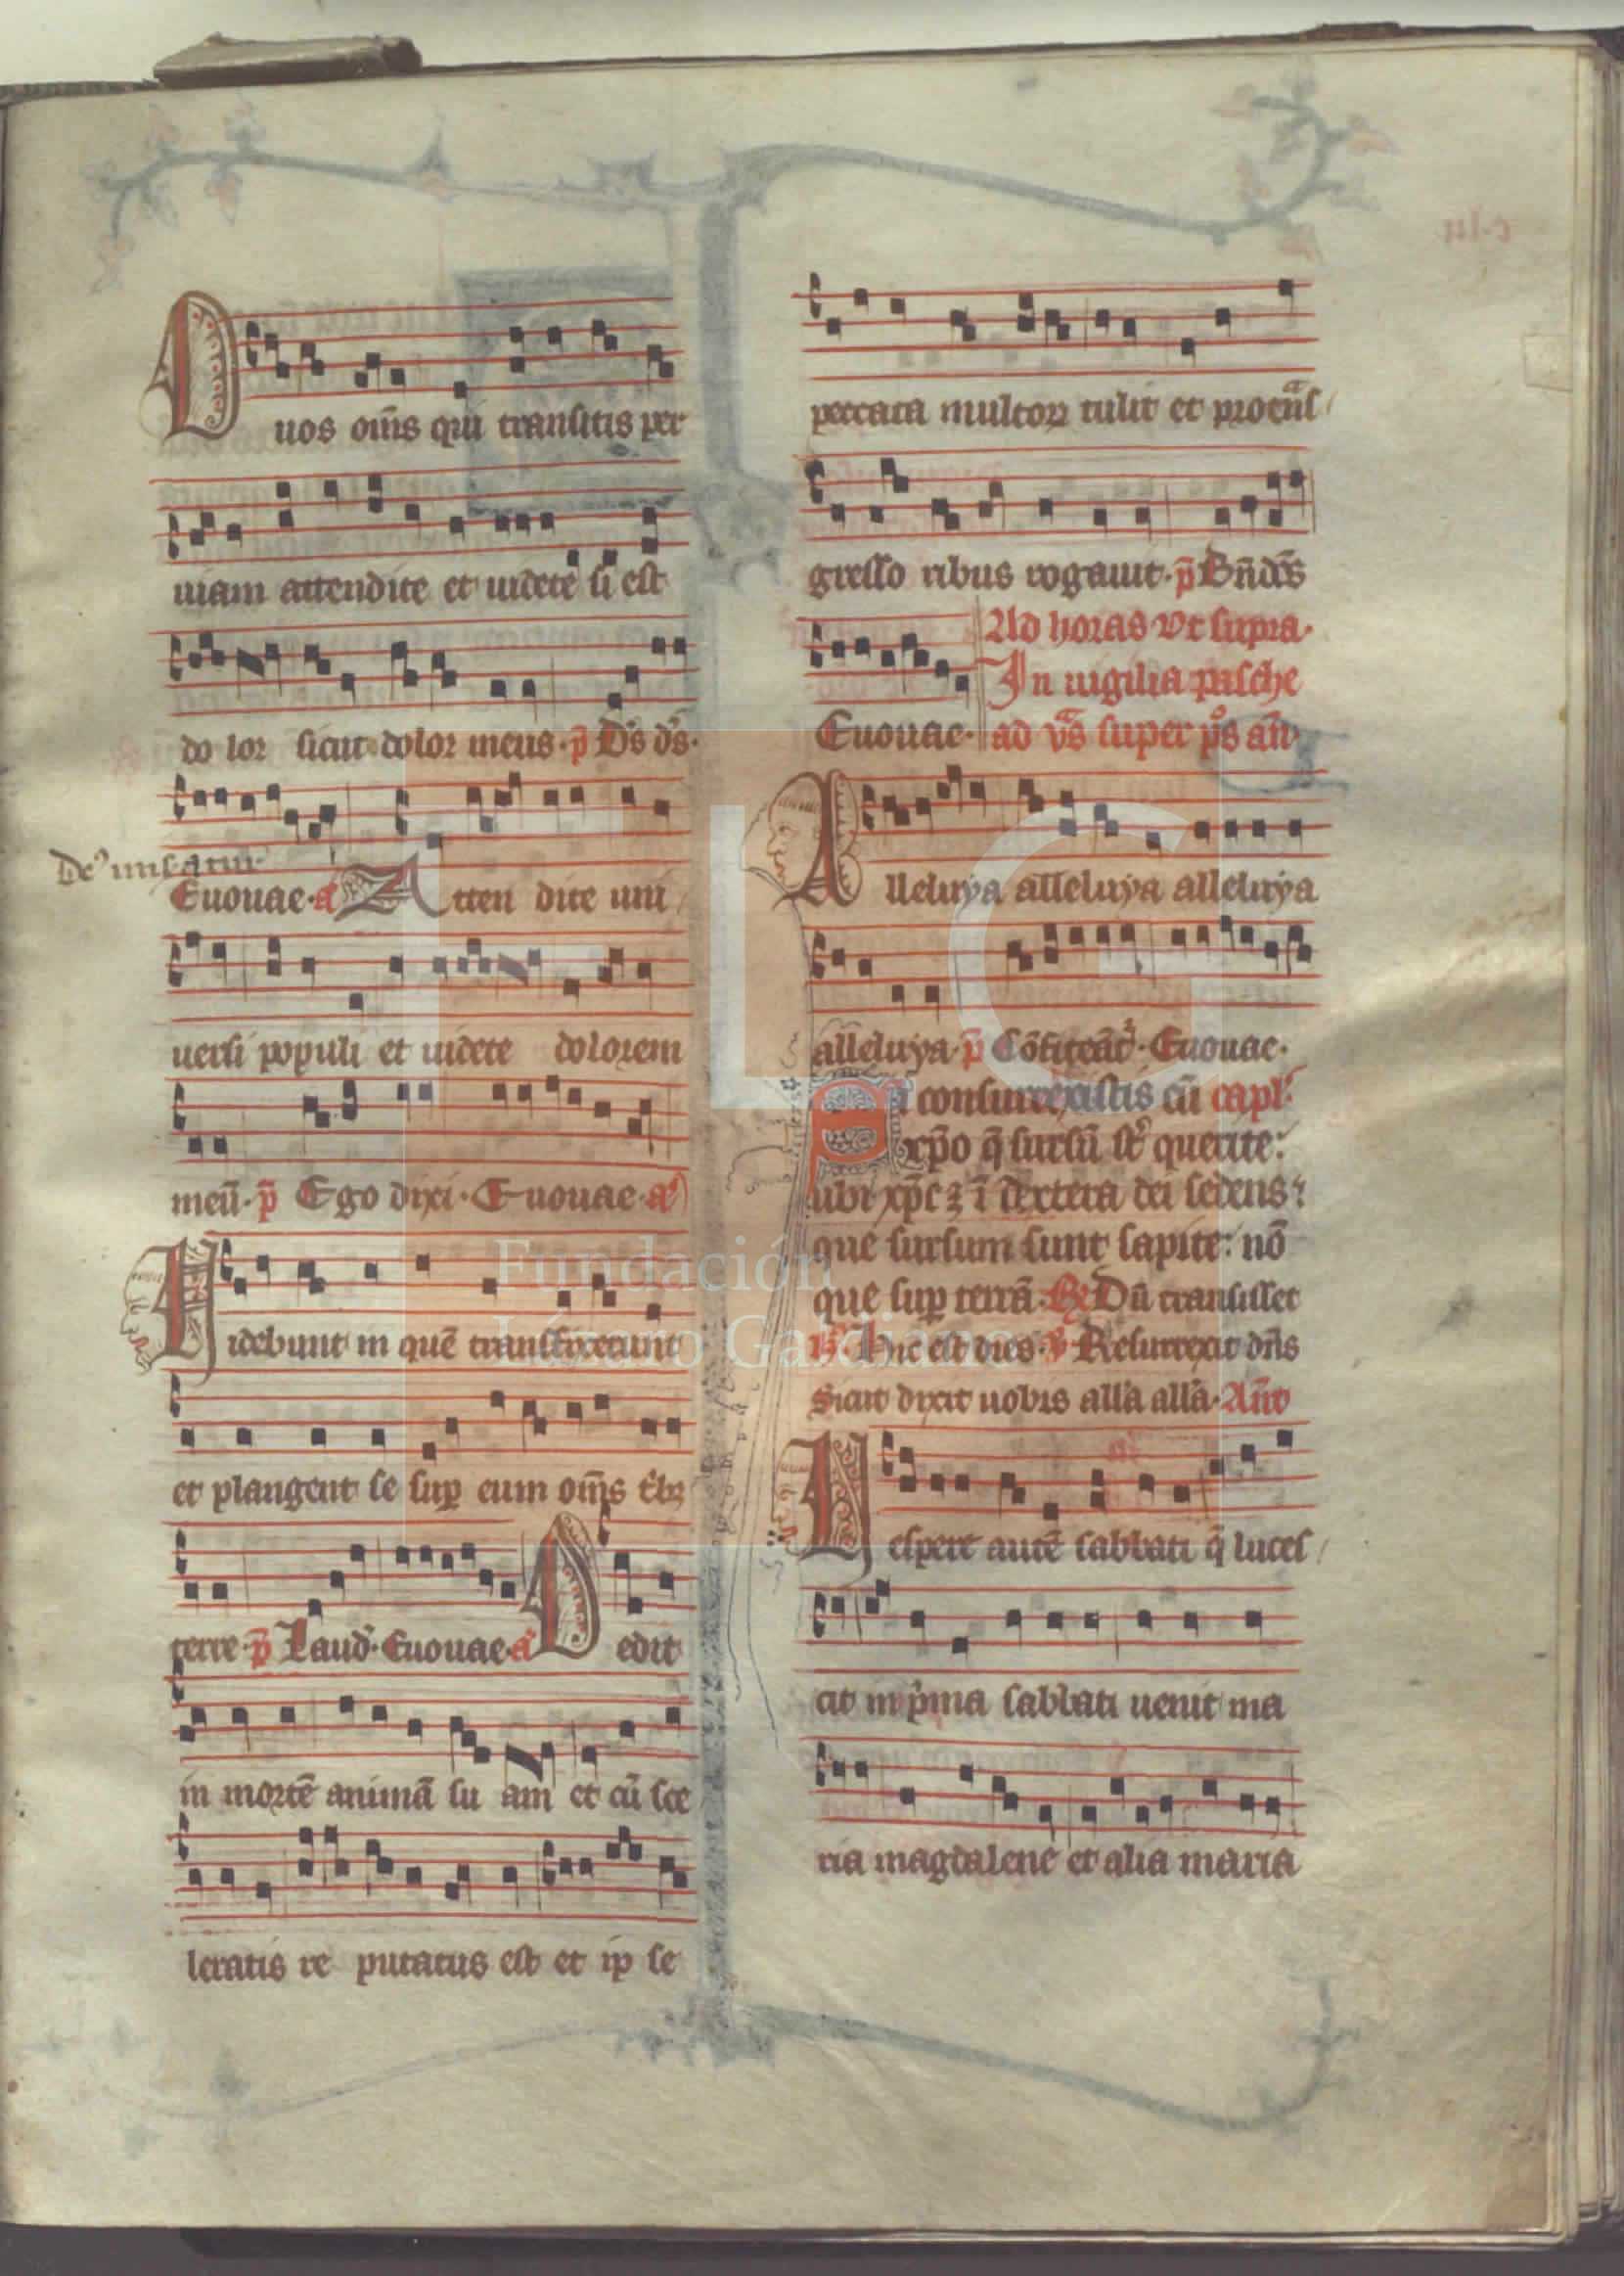 O uos om̄s qui transitis per
uiam attendite et uidete si est
do lor sicut dolor meus. p̄ D's d's.
Euouae. a Atten dite uni
uersi populi et uidete dolorem
meū. p̄ Ego dixi. Euouae. a
Uidebunt in quē transfixerunt
et plangent se sup eum om̄s
terre. p̄ Laud'. Euouae. a Dedit
in mortē animā su am et cū sce
leratis re putatus est et ip se
c.lii
peccata multoꝝ tulit et pro
gresso ribus rogauit. p̄ Bn̄d's
Ad horas vt supra.
In uigilia pasche
Euouae. ad super p̄s an̄
Alleluya alleluya alleluya
alleluya. p̄ Euouae.
Si consurrexistis cū capl'.
xp̄o q̄ sursū st' querite:
ubi xp̄c ꝫ ī dextera dei sedens:
que sursum sunt sapite: nō
que sup terrā. Dū transisset
Hec est dies. v̄ Resurrexit dn̄s
sicut dixit uobis alla alla. An̄
Uespere autē sabbati q̄ luces
cit in p'ma sabbati uenit ma
ria magdalene et alia maria
FLG
Fundación
Lázaro Galdiano